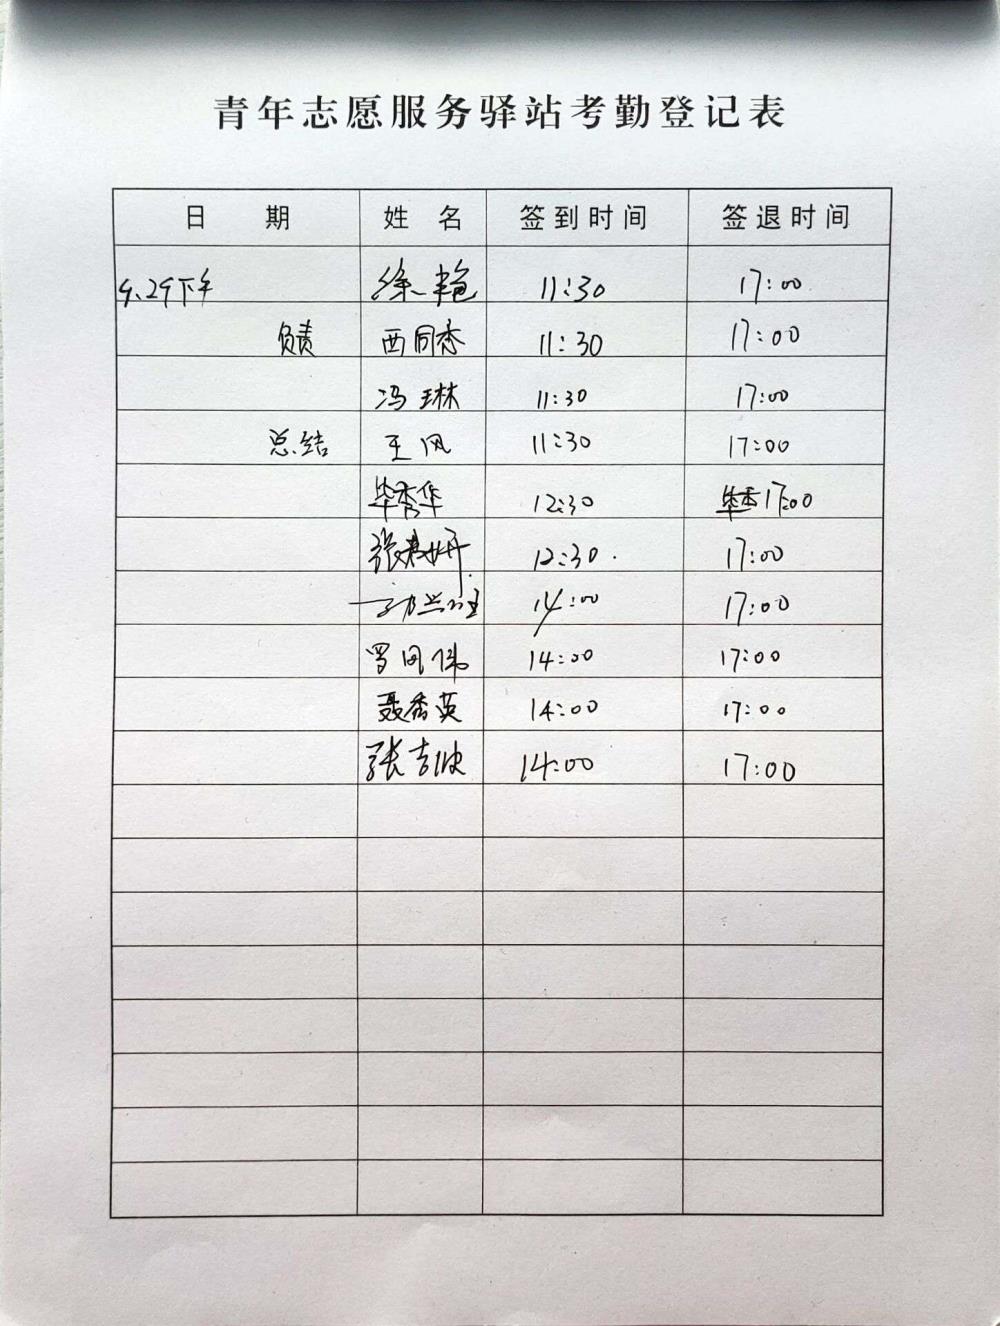 青年志愿服务驿站考勤登记表
日 期 姓 名 签到时间 签退时间
9.29下午 徐艳 11:30 17:00
负责 西同香 11:30 17:00
冯琳 11:30 17:00
总结 王凤 11:30 17:00
毕秀华 12:30 17:00
张 妍 12:30 17:00
14:00 17:00
罗国伟 14:00 17:00
聂秀英 14:00 17:00
张吉波 14:00 17:00